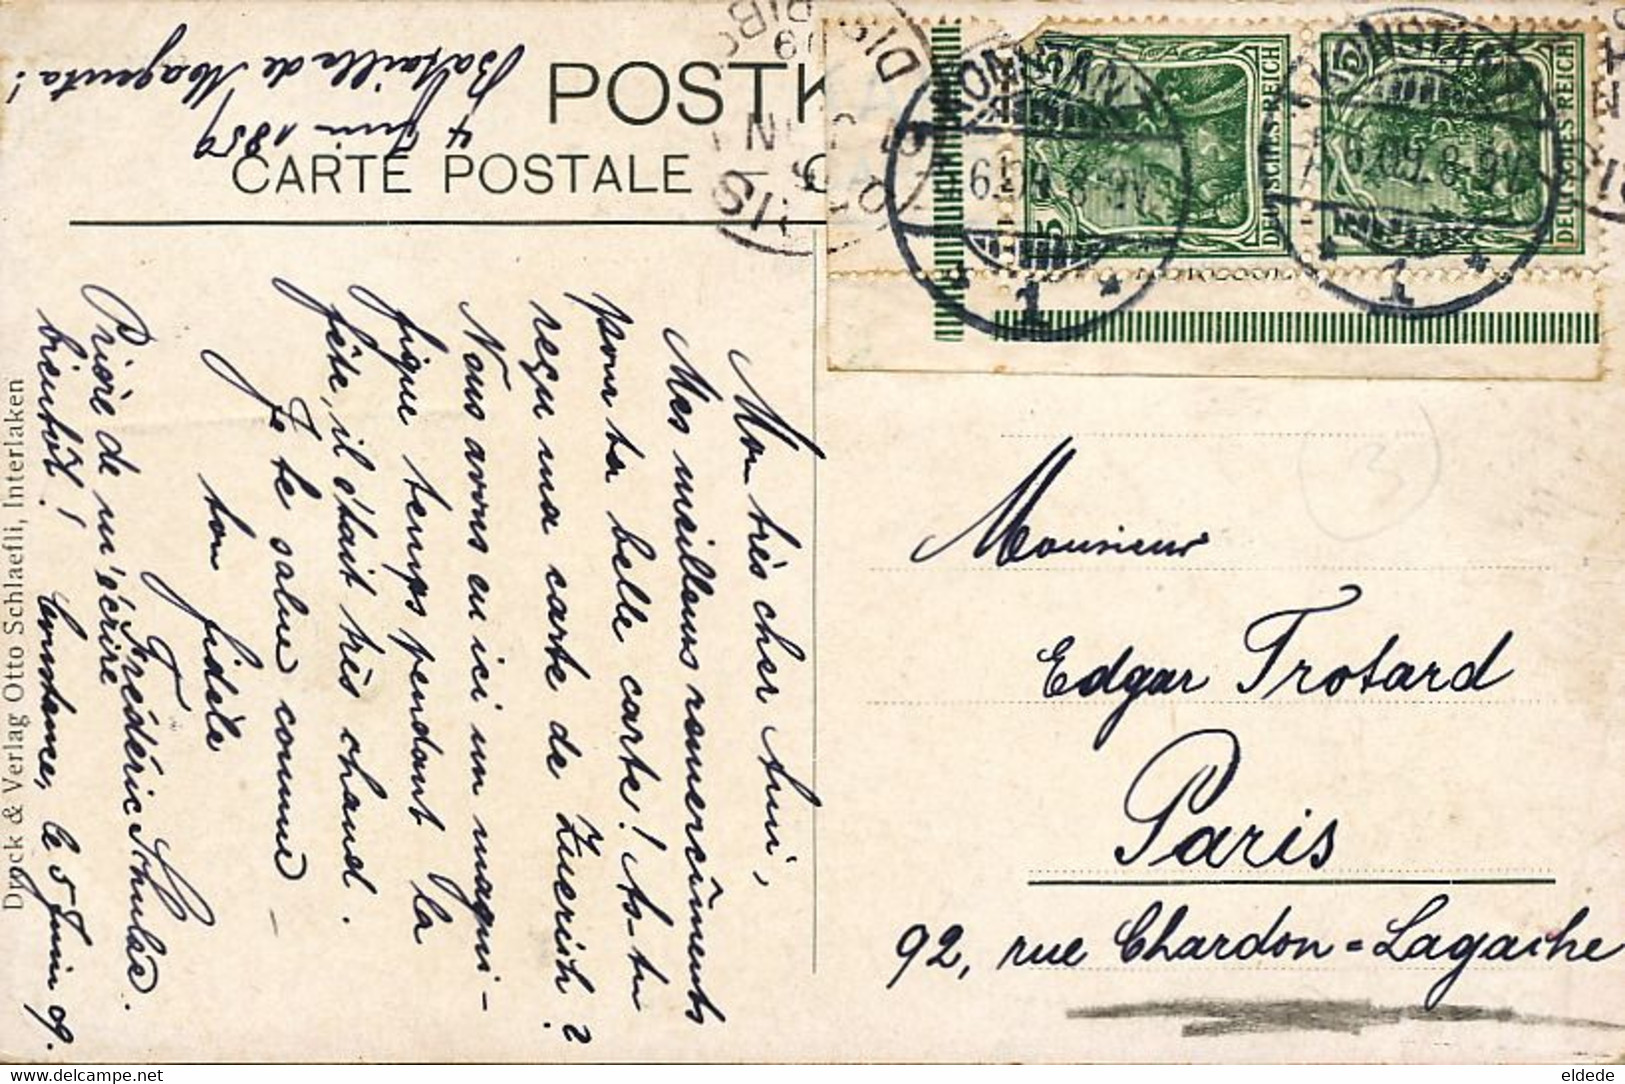 4 Juin 1859
Bataille de Magenta!
POSTK
CARTE POSTALE
Mon très cher Ami,
Mes meilleurs remercîments
pour ta belle carte! As-tu
reçu ma carte de Zuerich?
Nous avons eu ici un magni-
fique temps pendant la
fête, il était très chaud.
Je te salue comme
ton fidèle
Frédéric
Prière de m'écrire
bientôt! Constance, le 5 Juin 09.
Druck & Verlag Otto Schlaefli, Interlaken
DEUTSCHES REICH
5
DEUTSCHES REICH
5
KONSTANZ
6.6.09. 8-9V.
* 1 *
KONSTANZ
6.6.09. 8-9V.
* 1 *
3
Monsieur
Edgar Trotard
Paris
92, rue Chardon=Lagache
eldede